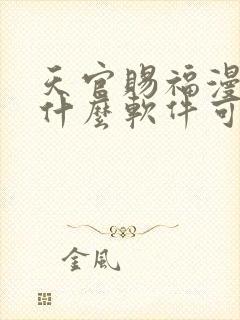 天官賜福漫
什麼軟件可
金風